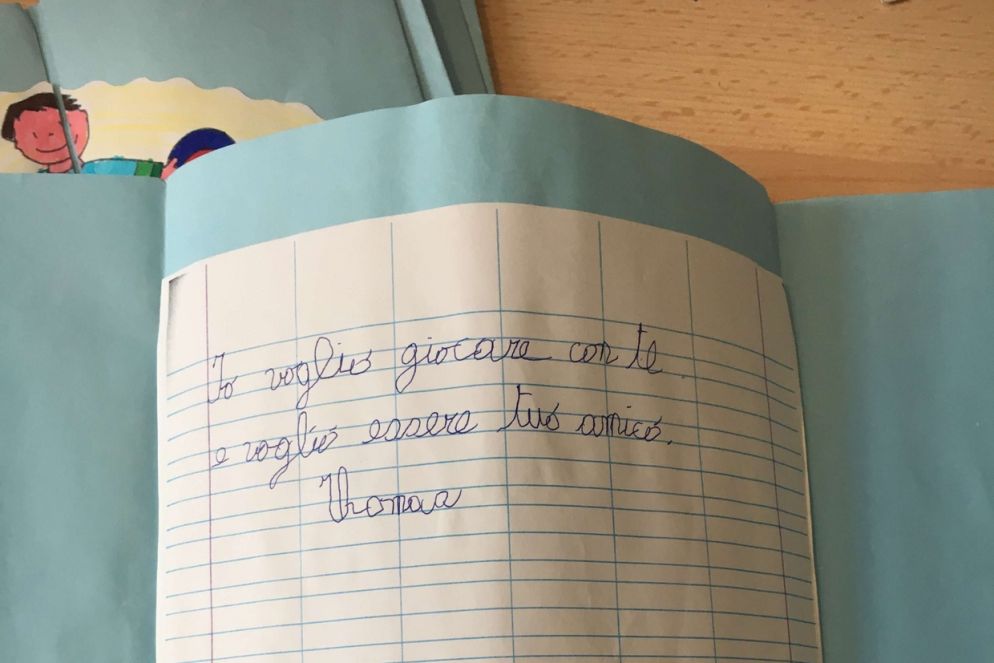 Io voglio giocare con te
e voglio essere tuo amico.
Thomas